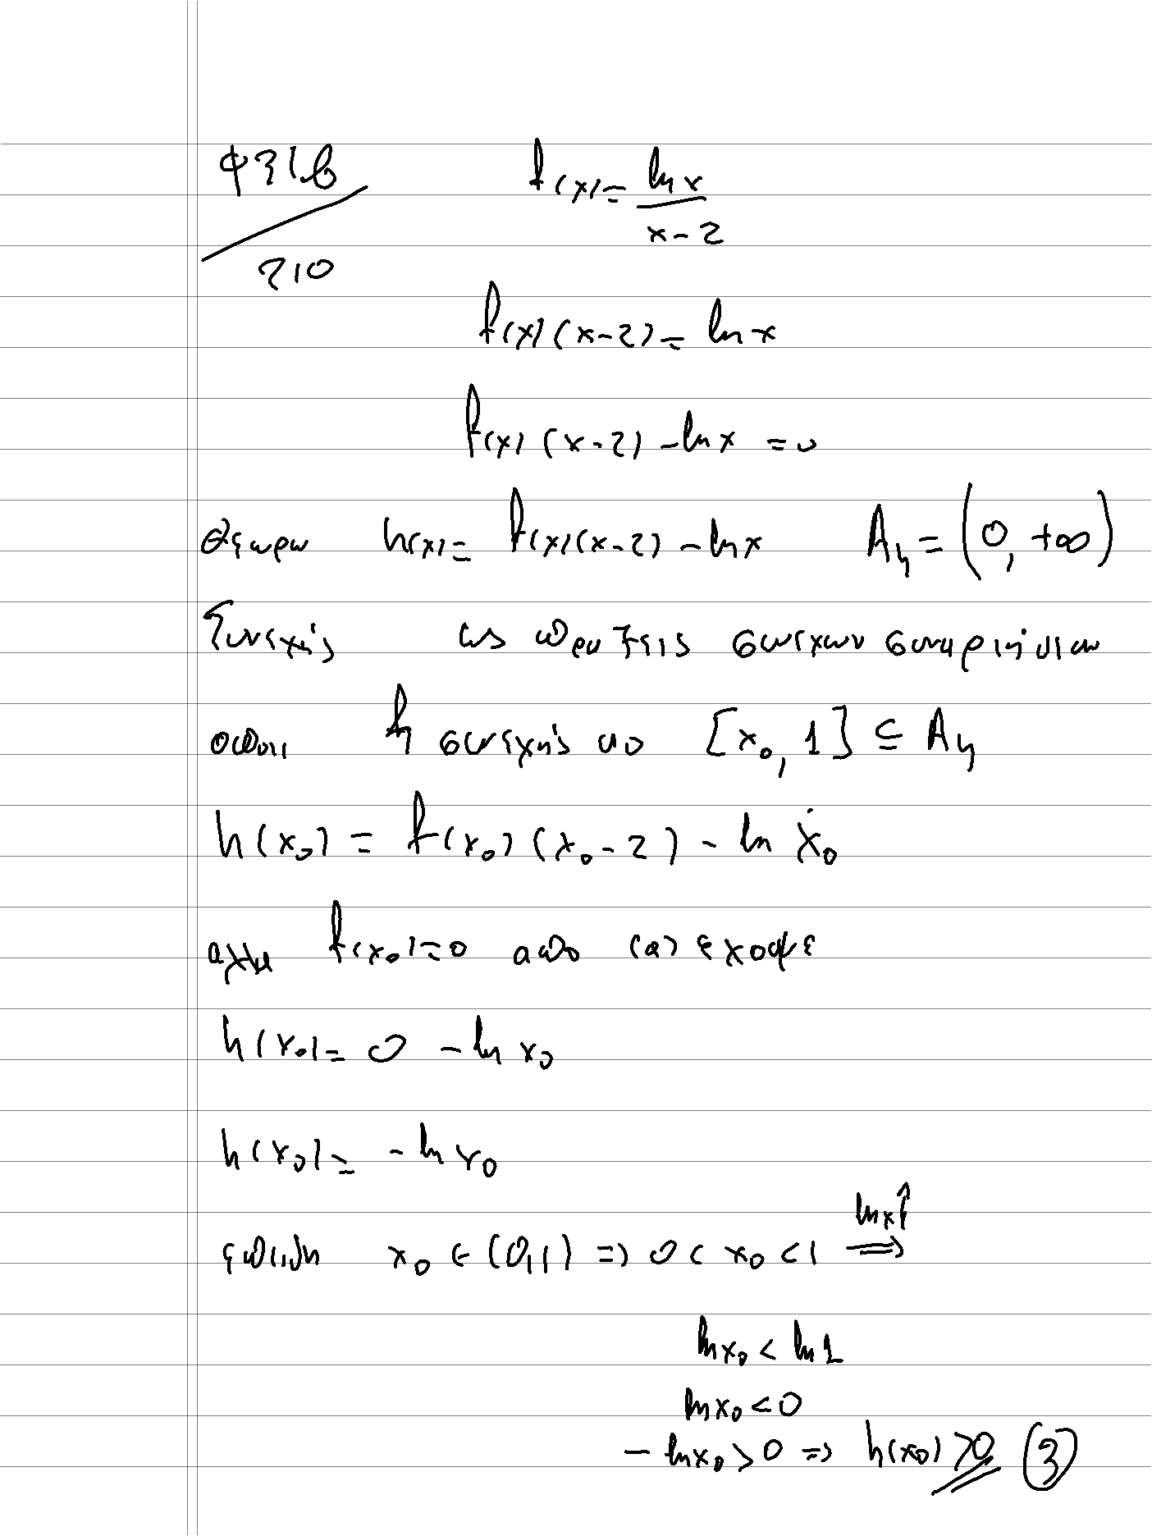 φ31β f(x)= ln x / x-2
210
f(x)(x-2)= ln x
f(x)(x-2)-ln x =0
Θεωρω h(x)= f(x)(x-2)-ln x A_h=(0,+∞)
Συνεχής ως πραξεις συνεχων συναρτήσεων
οποτε h συνεχής στο [x₀, 1] ⊆ A_h
h(x₀) = f(x₀)(x₀-2) - ln x₀
αλλα f(x₀)=0 απο (α) εχουμε
h(x₀)= 0 -ln x₀
h(x₀)= -ln x₀
επειδη x₀ ∈ (0,1) => 0< x₀ <1 => ln x↑
ln x₀ < ln 1
ln x₀ <0
- ln x₀ >0 => h(x₀) >0 (3)